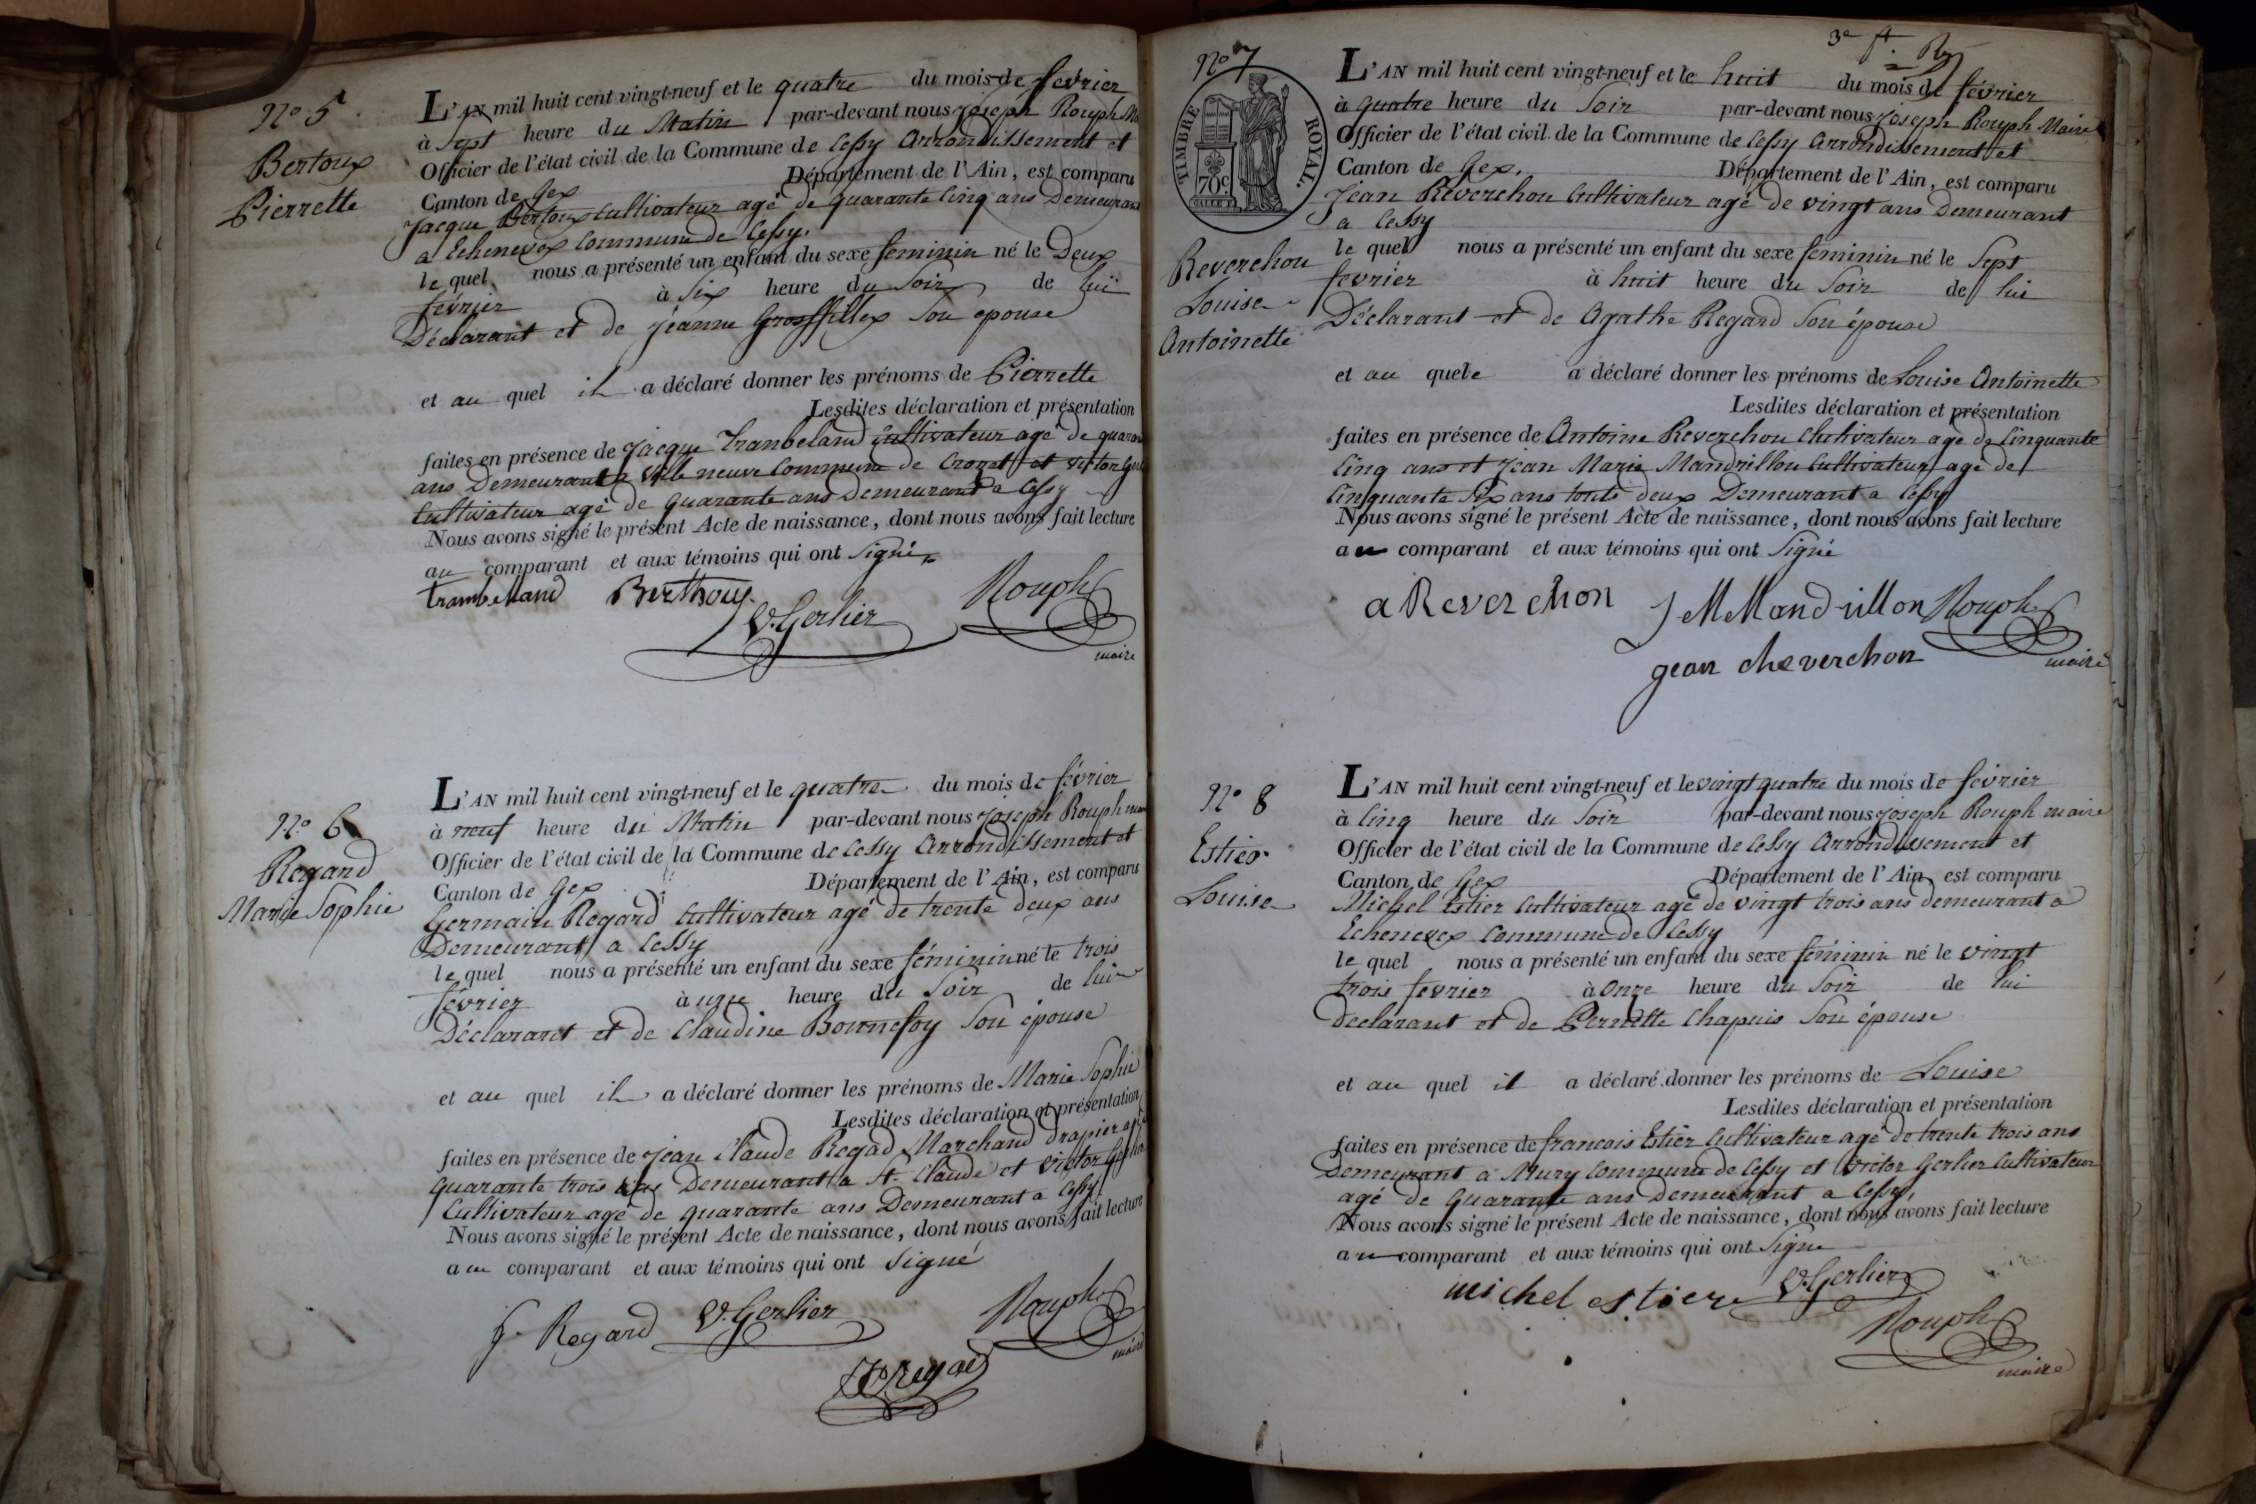 No 5
Bertoux
Pierrette
L'AN mil huit cent vingt-neuf et le quatre du mois de fevrier
à Sept heure du Matin par-devant nous joseph Rouph
Officier de l'état civil de la Commune de Cessy Arrondissement et
Canton de Gex Département de l'Ain, est comparu
Jacque Bertoux Cultivateur agé de quarante Cinq ans Demeurant
a Echenevex Commune de Cessy.
le quel nous a présenté un enfant du sexe feminin né le Deux
février à Six heure du Soir de lui
Déclarant et de jeanne Grosfillex Son epouse
et au quel il a déclaré donner les prénoms de Pierrette
Lesdites déclaration et présentation
faites en présence de jacque Trambeland Cultivateur agé de
ans Demeurant a Villeneuve Commune de Crozet et victor
Cultivateur agé de quarante ans Demeurant a Cessy
Nous avons signé le présent Acte de naissance, dont nous avons fait lecture
au comparant et aux témoins qui ont Signé
trambelland Berthoux
V. Gerlier Rouph
maire
No 6
Regard
Marie Sophie
L'AN mil huit cent vingt-neuf et le quatre du mois de février
à neuf heure du Matin par-devant nous joseph Rouph
Officier de l'état civil de la Commune de Cessy Arrondissement et
Canton de Gex Département de l'Ain, est comparu
Germain Regard Cultivateur agé de trente deux ans
Demeurant a Cessy
le quel nous a présenté un enfant du sexe féminin né le trois
février à une heure du Soir de lui
Déclarant et de Claudine Bonnefoy Son épouse
et au quel il a déclaré donner les prénoms de Marie Sophie
Lesdites déclaration et présentation
faites en présence de jean Claude Regad Marchand drapier
quarante trois ans Demeurant a St. Claude et victor
Cultivateur agé de quarante ans Demeurant a Cessy
Nous avons signé le présent Acte de naissance, dont nous avons fait lecture
au comparant et aux témoins qui ont Signé
g. Regard V. Gerlier Rouph
maire
Regad
3e ft.
No 7
TIMBRE ROYAL.
70c
Reverchon
Louise
Antoinette
L'AN mil huit cent vingt-neuf et le huit du mois de février
à quatre heure du Soir par-devant nous joseph Rouph Maire
Officier de l'état civil de la Commune de Cessy Arrondissement et
Canton de Gex. Département de l'Ain, est comparu
Jean Reverchon Cultivateur agé de vingt ans Demeurant
a Cessy
le quel nous a présenté un enfant du sexe feminin né le Sept
fevrier à huit heure du Soir de lui
Déclarant et de Agathe Regard Son épouse
et au quele a déclaré donner les prénoms de Louise Antoinette
Lesdites déclaration et présentation
faites en présence de Antoine Reverchon Cultivateur agé de Cinquante
Cinq ans et Jean Marie Mandrillon Cultivateur agé de
Cinquante Six ans touts deux Demeurant a Cessy
Nous avons signé le présent Acte de naissance, dont nous avons fait lecture
au comparant et aux témoins qui ont Signé
a Reverchon J M Mandrillon Rouph
maire
gean cheverchon
No 8
Estier
Louise
L'AN mil huit cent vingt-neuf et le vingt quatre du mois de fevrier
à Cinq heure du Soir par-devant nous joseph Rouph maire
Officier de l'état civil de la Commune de Cessy Arrondissement et
Canton de Gex Département de l'Ain, est comparu
Michel Estier Cultivateur agé de vingt trois ans demeurant a
Echenevex Commune de Cessy
le quel nous a présenté un enfant du sexe féminin né le vingt
trois fevrier à Onze heure du Soir de lui
declarant et de Pernette Chapuis Son épouse
et au quel il a déclaré donner les prénoms de Louise
Lesdites déclaration et présentation
faites en présence de francois Estier Cultivateur agé de trente trois ans
Demeurant a Mury Commune de Cessy et Victor Gerlier Cultivateur
agé de Quarante ans Demeurant a Cessy,
Nous avons signé le présent Acte de naissance, dont nous avons fait lecture
au comparant et aux témoins qui ont Signe
michel estier V. Gerlier
Rouph
maire